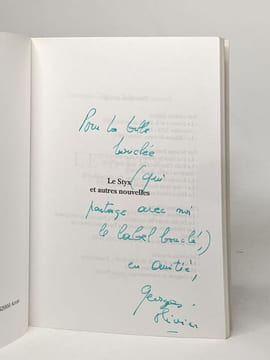 Pour la belle
bouclée
(qui
Le Styx
et autres nouvelles
partage avec moi
le label bouclé,)
en amitié,
Georges
Olivier